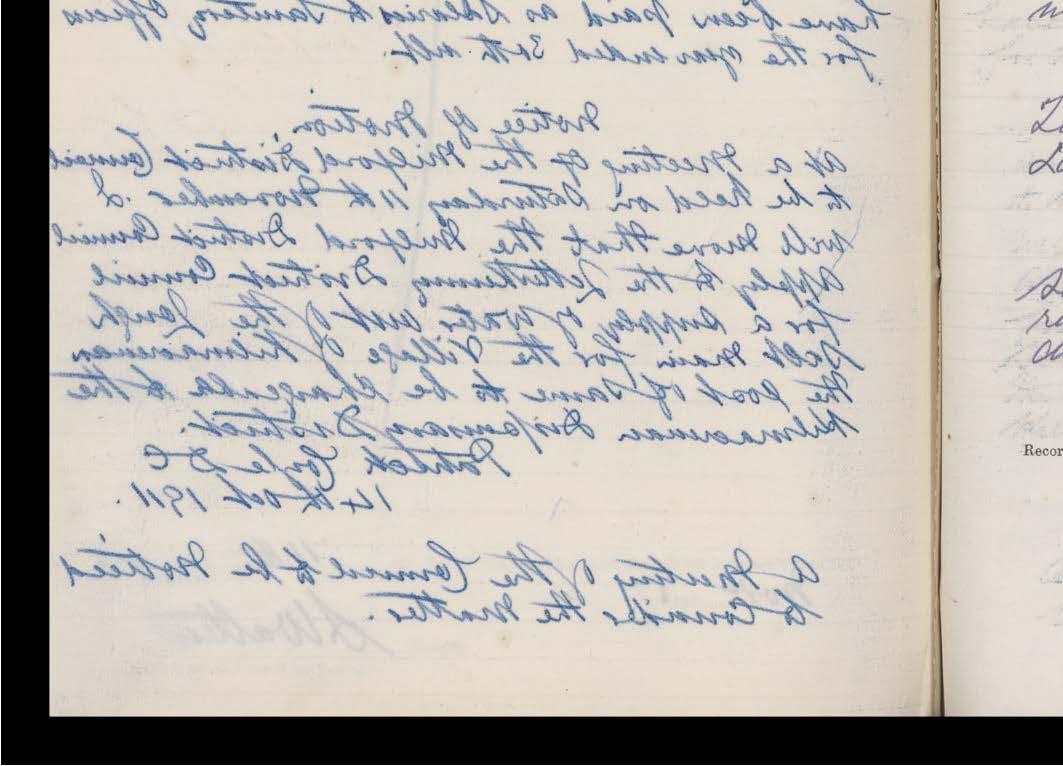 have been paid as Salaries to Sanitary Officers
for the year ended 30th ult.
Notice of Motion.
At a Meeting of the Milford District Council
to be heed on Saturday 11th November. I
will move that the Milford District Council
apply to the Letterkenny District Council
for a supply of water out of the Lough
Salt Main for the Village of Kilmacrenan
the cost of same to be chargeable to the
Kilmacrenan Dispensary District.
Patrick Coyle D C
14th Oct 1911.
A Meeting of the Council to be Noticed
to Consider the Matter.
Recor